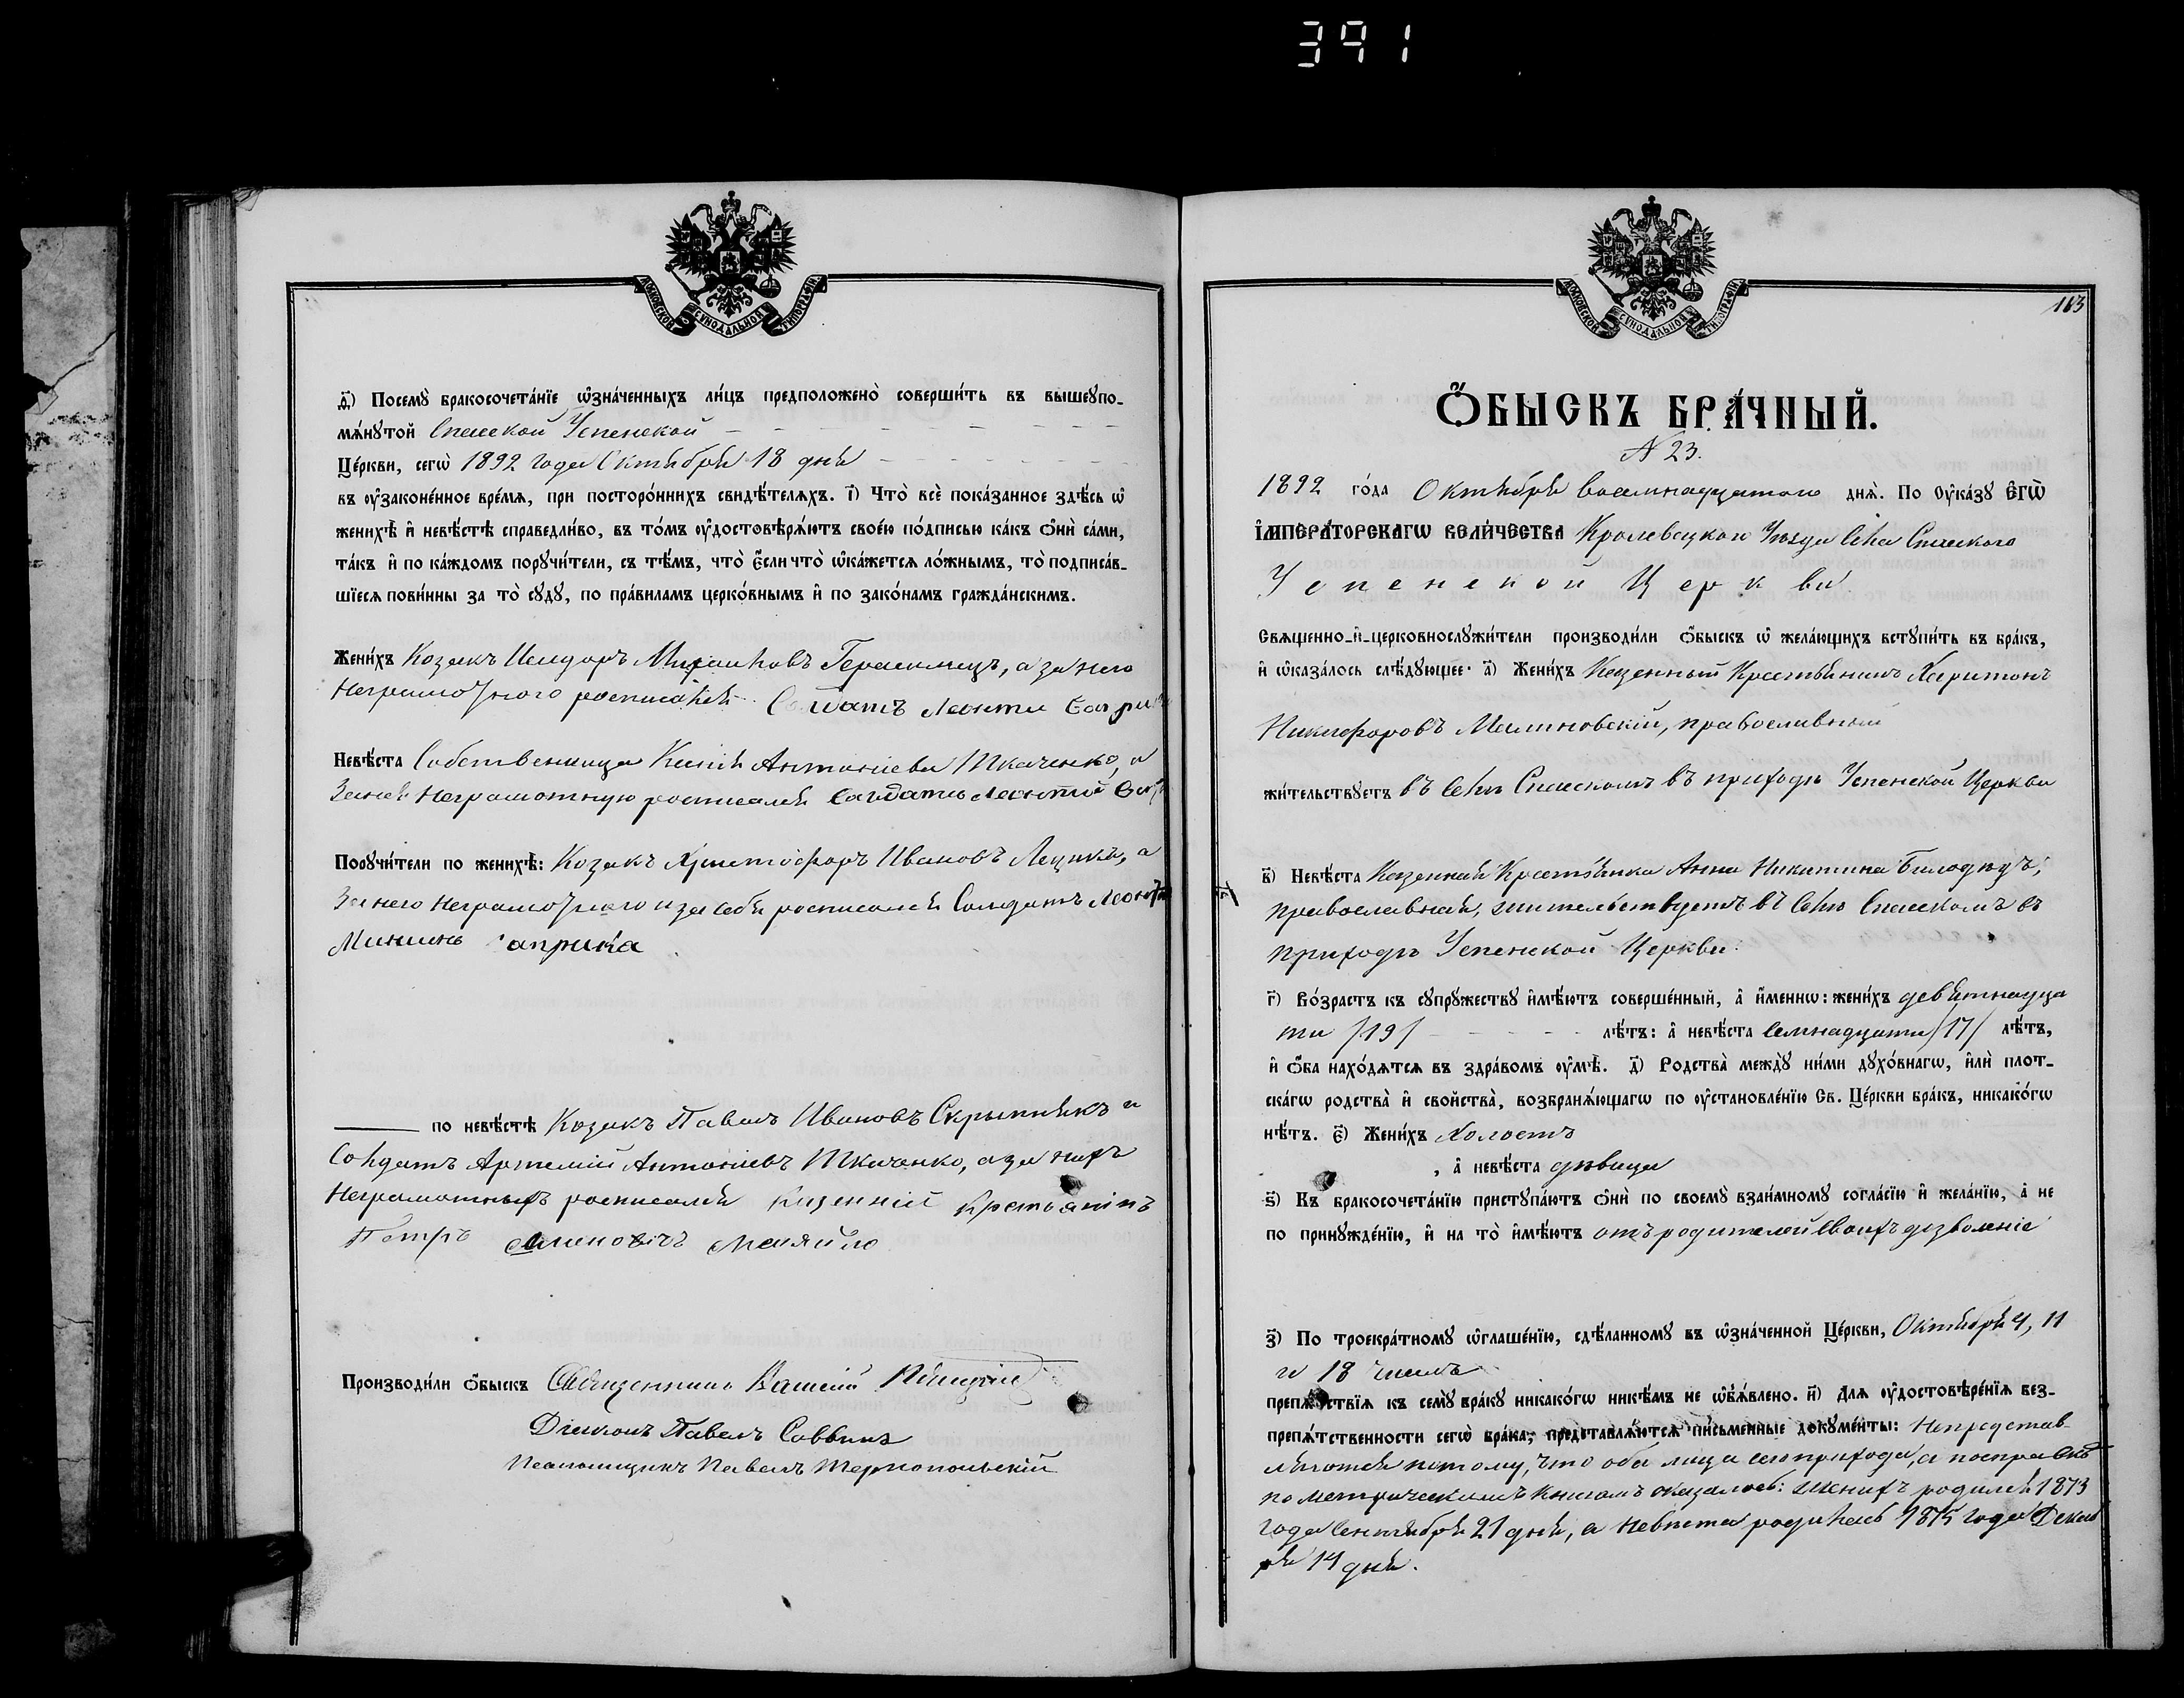 391
МОСКОВСКОЙ СѴНОДАЛЬНОЙ ТИПОГРАФІИ
д҃і) Посемꙋ̀ бракосочета́нїе ѡ҆зна́ченныхъ ли́цъ предположено̀ соверши́ть въ вышеꙋпо-
мѧ́нꙋтой Спасской Успенской
Це́ркви, сегѡ̀ 1892 года Октября 18 дня
въ ᲂу҆законе́нное вре́мѧ, при посторо́ннихъ свидѣ́телѧхъ. і҃) Что̀ всѐ пока́занное здѣ́сь ѡ҆
женихѣ̀ и҆ невѣ́стѣ справедли́во, въ то́мъ ᲂу҆достовѣрѧ́ютъ свое́ю по́дписью ка́къ ѻ҆нѝ са́ми,
та́къ и҆ по ка́ждомъ порꙋчи́тели, съ тѣ́мъ, что̀ є҆́сли что̀ ѡ҆ка́жетсѧ ло́жнымъ, то̀ подписа́в-
шїесѧ пови́нны за то̀ сꙋдꙋ̀, по пра́виламъ церко́внымъ и҆ по зако́намъ гражда́нскимъ.
Жени́хъ Козакъ Исидоръ Михаиловъ Герасимецъ, а за него
неграмотного росписался Солдатъ Леонти
Невѣ́ста Собственница Ксенія Антоніева Ткаченко, а
за нея неграмотную росписался Солдатъ Леонтій
Порꙋчи́тели по женихѣ̀: Козакъ Христофоръ Ивановъ Лецикъ, а
за него неграмотного и за себя росписался Солдатъ
Мининъ
по невѣ́стѣ Козакъ Павелъ Ивановъ Скрыпникъ и
Солдатъ Артемій Антоніевъ Ткаченко, а за нихъ
неграмотныхъ росписался Казенній Крестьянинъ
Петръ
Производи́ли ѻ҆́быскъ Священникъ Василій
Діаконъ Павелъ Саввинъ
Псаломщикъ Павелъ Тернопольскій
МОСКОВСКОЙ СѴНОДАЛЬНОЙ ТИПОГРАФІИ
183
Ѻ҆́БЫСКЪ БРА́ЧНЫЙ.
N 23.
1892 го́да Октября восемнадцатого днѧ̀. По Оу҆ка́зꙋ Е҆ГѠ̀
І҆МПЕРА́ТОРСКАГѠ ВЕЛИ́ЧЕСТВА Кролевецкого Уѣзда села Спасского
Успенской Церкви
Свѧщенно-и҆-церковнослꙋжи́тели производи́ли ѻ҆́быскъ ѡ҆ жела́ющихъ встꙋпи́ть въ бра́къ,
и҆ ѡ҆каза́лось слѣ́дꙋющее: а҃) Жени́хъ Казенный Крестьянинъ Харитонъ
Никифоровъ Малиновскій, православный
жи́тельствꙋетъ въ селѣ Спасскомъ въ приходѣ Успенской Церкви
в҃) Невѣ́ста Казенная Крестьянка Анна Никитина Билодѣдъ,
православная, жительствуетъ въ селѣ Спасскомъ въ
приходѣ Успенской Церкви.
г҃) Во́зрастъ къ сꙋпрꙋ́жествꙋ и҆мѣ́ютъ соверше́нный, а҆ и҆́меннѡ: жени́хъ девятнадца
ти /19/ лѣ́тъ: а҆ невѣ́ста семнадцати /17/ лѣ́тъ,
и҆ ѻ҆́ба нахо́дѧтсѧ въ здра́вомъ ᲂу҆мѣ̀. д҃) Родства̀ междꙋ̀ ни́ми дꙋхо́внагѡ, и҆лѝ пло́т-
скагѡ родства̀ и҆ свойства̀, возбранѧ́ющагѡ по ᲂу҆становле́нїю Св. Це́ркви бра́къ, никако́гѡ
нѣ́тъ. є҃) Жени́хъ Холостъ
, а҆ невѣ́ста дѣвица
ѕ҃) Къ бракосочета́нїю пристꙋпа́ютъ ѻ҆нѝ по своемꙋ̀ взаи́мномꙋ согла́сїю и҆ жела́нїю, а҆ не
по принꙋжде́нїю, и҆ на то̀ и҆мѣ́ютъ отъ родителей своихъ дозволеніе
з҃) По троекра́тномꙋ ѡ҆глаше́нїю, сдѣ́ланномꙋ въ ѡ҆зна́ченной Це́ркви, Октября 4, 11
и 18 числъ
препѧ́тствїѧ къ семꙋ̀ бра́кꙋ никако́гѡ никѣ́мъ не ѡ҆б̾ѧ́влено. и҃) Длѧ ᲂу҆достовѣре́нїѧ без-
препѧ́тственности сегѡ̀ бра́ка, представлѧ́ютсѧ пи́сьменные докꙋме́нты: Непредстав-
ляются потому, что оба лица сего прихода, а по справкѣ
по метрическимъ книгамъ оказалось: женихъ родился 1873
года Сентября 21 дня, а невѣста родилась 1875 года Декаб
ря 14 дня.